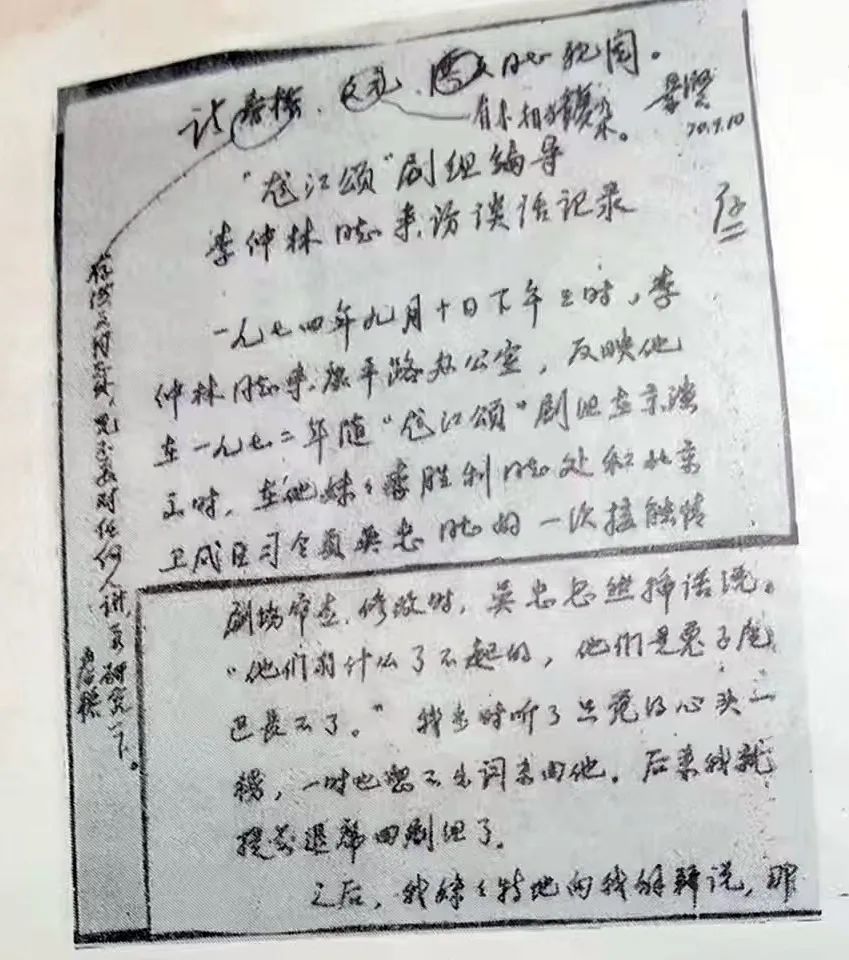 请春桥、文元、洪文同志既阅。
景贤
"龙江颂"剧组编导
李仲林同志来访谈话记录
一九七四年九月十日下午三时，李
仲林同志来康平路办公室，反映他
在一九七二年随"龙江颂"剧组在京演
出时，在他妹妹李胜利同志处和北京
卫戍区司令员吴忠同志的一次接触情
剧场审查、修改时，吴忠忽然插话说。
"他们有什么了不起的，他们是兔子尾
巴长不了。"我当时听了只觉得心头一
愣，一时也想不出词来回他。后来我就
提前退席回剧组了。
之后，我妹妹特地向我解释说，那
对任何人讲，要研究一下。
春桥